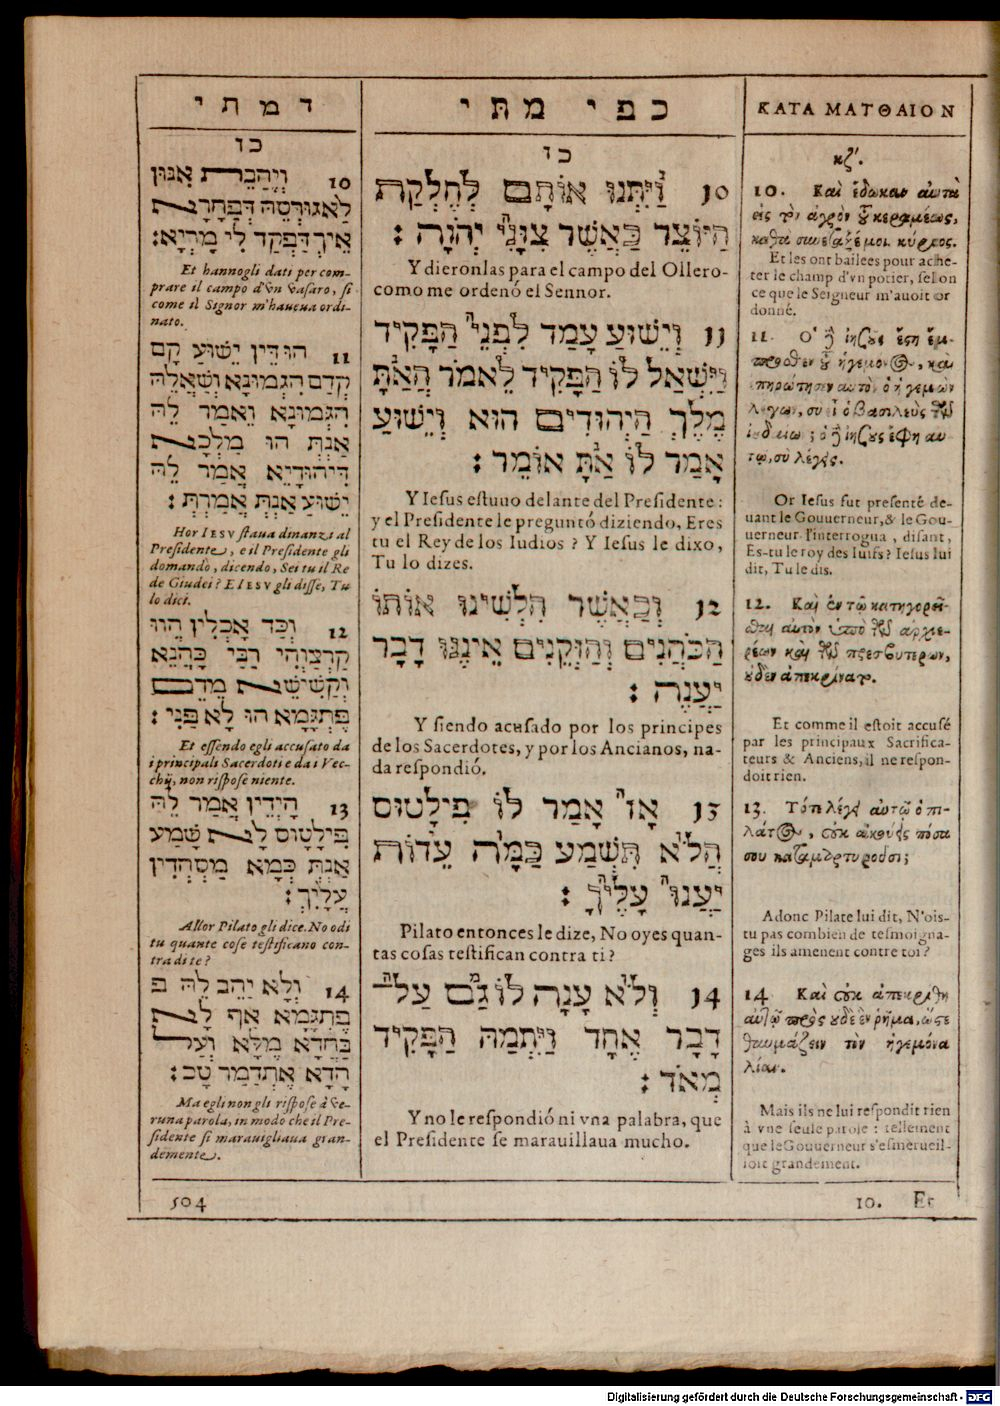 דמתי
כו
10 וְיַהבֵת אִנּוּן
לַאגוּרְסֵהּ דְּפַחָרָא
אֵיךְ דַּפְקַד לִי מָרְיָא:
Et hannogli dati per com-
prare il campo d'vn vasaro, si
come il Signor m'haueua ordi-
nato.
11 הוּ דֵּין יֵשׁוּעַ קָם
קְדָם הִגְמוּנָא וְשַׁאֲלֵהּ
הִגְמוּנָא וֵאמַר לֵהּ
אַנְתְּ הוּ מַלְכָּא
דִּיהוּדָיֵא אֲמַר לֵהּ
יֵשׁוּעַ אַנְתְּ אֲמַרְתְּ:
Hor IESV staua dinanzi al
Presidente, e il Presidente gli
domandò, dicendo, Sei tu il Re
de Giudei? E IESV gli disse, Tu
lo dici.
12 וְכַד אָכְלִין הֲווֹ
קַרְצוֹהִי רַבַּי כָּהֲנֵא
וְקַשִּׁישֵׁא מֵדֵם
פִּתְגָּמָא הוּ לָא פַּנִּי:
Et essendo egli accusato da
i principali Sacerdoti e da i Vec-
chij, non rispose niente.
13 הָיְדֵין אֲמַר לֵהּ
פִּילָטוֹס לָא שָׁמַע
אַנְתְּ כְּמָא מַסְהְדִין
עֲלָיךְ:
Allor Pilato gli dice. No odi
tu quante cose testificano con-
tra di te?
14 וְלָא יַהֵב לֵהּ פ
פִּתְגָּמָא אָף לָא
בַּחֲדָא מֶלָּא וְעַל
הָדָא אֶתְדַּמַּר טָב:
Ma egli non gli rispose à ve-
runa parola, in modo che il Pre-
sidente si marauigliaua gran-
demente.
504
כפי מתי
כו
10 וַיִּתְּנוּ אוֹתָם לְחֶלְקַת
הַיּוֹצֵר כַּאֲשֶׁר צִוַּנִי יְהוָֹה:
Y dieronlas para el campo del Ollero-
como me ordenó el Sennor.
11 וְיֵשׁוּעַ עָמַד לִפְנֵי הַפָּקִיד
וַיִּשְׁאַל לוֹ הַפָּקִיד לֵאמֹר הַאַתָּ
מֶלֶךְ הַיְּהוּדִים הוּא וְיֵשׁוּעַ
אָמַר לוֹ אַתָּ אוֹמֵר:
Y Iesus estuuo delante del Presidente:
y el Presidente le preguntó diziendo, Eres
tu el Rey de los Iudios? Y Iesus le dixo,
Tu lo dizes.
12 וְכַאֲשֶׁר הִלְשִׁינוּ אוֹתוֹ
הַכֹּהֲנִים וְהַזְּקֵנִים אֵינֶנּוּ דָבָר
יַעֲנֶה:
Y siendo acusado por los principes
de los Sacerdotes, y por los Ancianos, na-
da respondió.
13 אָז אָמַר לוֹ פִּילָטוּס
הֲלֹא תִּשְׁמַע כַּמָּה עֵדוּת
יַעֲנוּ עָלֶיךָ:
Pilato entonces le dize, No oyes quan-
tas cosas testifican contra ti?
14 וְלֹא עָנָה לוֹ גַּם עַל
דָּבָר אֶחָד וַיִּתְמַהּ הַפָּקִיד
מְאֹד:
Y no le respondió ni vna palabra, que
el Presidente se marauillaua mucho.
ΚΑΤΑ ΜΑΤΘΑΙΟΝ
κζ'.
10. Καὶ ἔδωκαν αὐτὰ
εἰς τὸν ἀγρὸν τοῦ κεραμέως,
καθὰ συνέταξέ μοι κύριος.
Et les ont bailees pour ache-
ter le champ d'vn potier, selon
ce que le Seigneur m'auoit or
donné.
11. Ὁ δὲ ἰησοῦς ἔστη ἔμ-
προσθεν τοῦ ἡγεμόνος, καὶ
ἐπηρώτησεν αὐτὸν ὁ ἡγεμὼν
λέγων, σὺ εἶ ὁ βασιλεὺς τῶν
ἰουδαίων; ὁ δὲ ἰησοῦς ἔφη αυ
τῷ, σὺ λέγεις.
Or Iesus fut presenté de-
uant le Gouuerneur, & le Gou-
uerneur l'interrogua, disant,
Es-tu le roy des Iuifs? Iesus lui
dit, Tu le dis.
12. Καὶ ἐν τῷ κατηγορεῖ-
σθαι αὐτὸν ὑπὸ τῶν ἀρχιε-
ρέων καὶ τῶν πρεσβυτέρων,
οὐδὲν ἀπεκρίνατο.
Et comme il estoit accusé
par les principaux Sacrifica-
teurs & Anciens, il ne respon-
doit rien.
13. Τότε λέγει αὐτῷ ὁ πι-
λάτος, οὐκ ἀκούεις πόσα
σου καταμαρτυροῦσι;
Adonc Pilate lui dit, N'ois-
tu pas combien de tesmoigna-
ges ils amenent contre toi?
14 Καὶ οὐκ ἀπεκρίθη
αὐτῷ πρὸς οὐδὲ ἓν ῥῆμα, ὥστε
θαυμάζειν τὸν ἡγεμόνα
λίαν.
Mais ils ne lui respondit rien
à vne seule parole: tellement
que le Gouuerneur s'esmerueil-
loit grandement.
10. Et
Digitalisierung gefördert durch die Deutsche Forschungsgemeinschaft - DFG